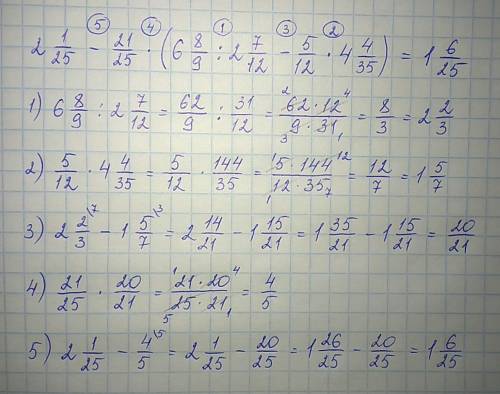 ⑤ ④ ① ③ ②
2 1/25 − 21/25 · (6 8/9 : 2 7/12 − 5/12 · 4 4/35) = 1 6/25
1) 6 8/9 : 2 7/12 = 62/9 : 31/12 = ²62·12⁴/₃9·31₁ = 8/3 = 2 2/3
2) 5/12 · 4 4/35 = 5/12 · 144/35 = ¹5·144¹²/₁12·35₇ = 12/7 = 1 5/7
3) 2 2/3\⁷ − 1 5/7\³ = 2 14/21 − 1 15/21 = 1 35/21 − 1 15/21 = 20/21
4) 21/25 · 20/21 = ¹21·20⁴/₅25·21₁ = 4/5
5) 2 1/25 − 4/5\⁵ = 2 1/25 − 20/25 = 1 26/25 − 20/25 = 1 6/25